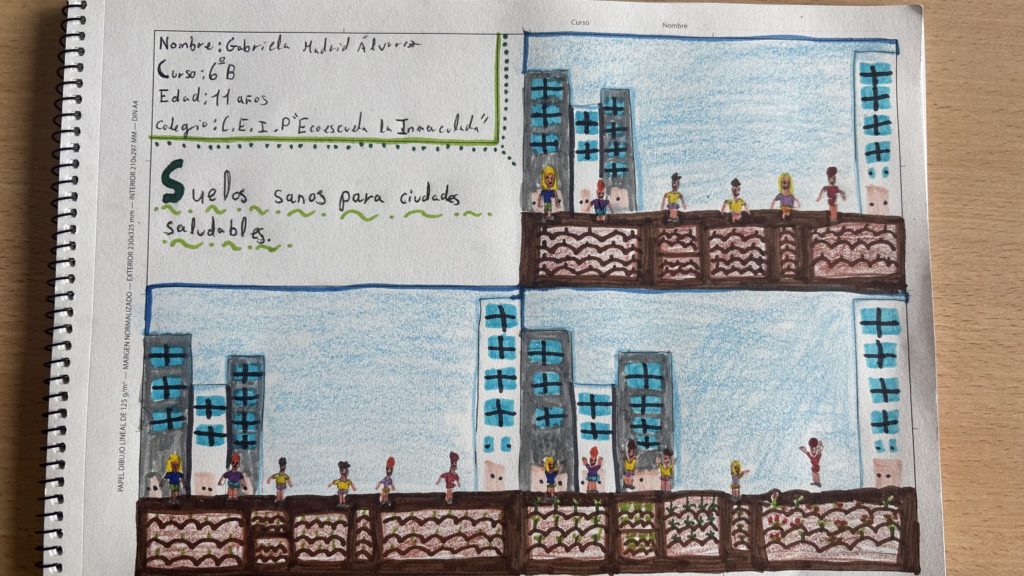 Curso
Nombre
Nombre: Gabriela Madrid Álvarez
Curso: 6º B
Edad: 11 años
Colegio: C.E.I.P "Ecoescuela la Inmaculada"
Suelos sanos para ciudades
saludables.
PAPEL DIBUJO LINEAL DE 125 g/m² — MARGEN NORMALIZADO — EXTERIOR 230x325 mm — INTERIOR 210x297 MM — DIN A4